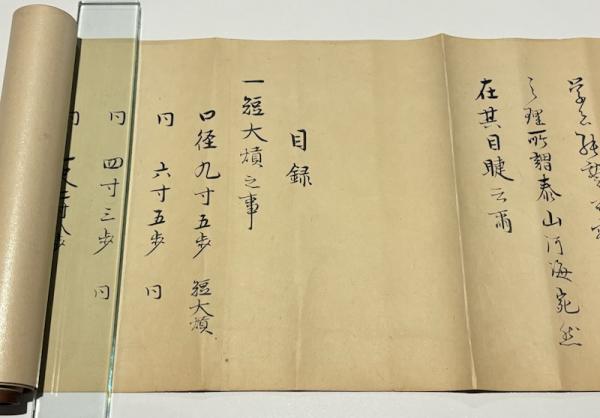 学者
之理所謂泰山河海宛然
在其目睫云爾
目録
一短大熕之事
口径九寸五歩 短大熕
同 六寸五歩 同
同 四寸三歩 同
同